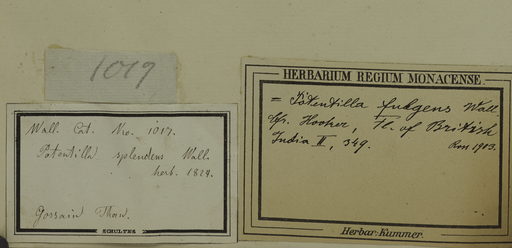 1019
Wall. Cat. No. 1017.
Potentilla splendens Wall.
herb. 1824.
Gossain Than.
SCHULTES
HERBARIUM REGIUM MONACENSE
= Potentilla fulgens Wall.
Cfr. Hooker, Fl. of British
India II, 349.
Ross 1903.
Herbar. Kummer.